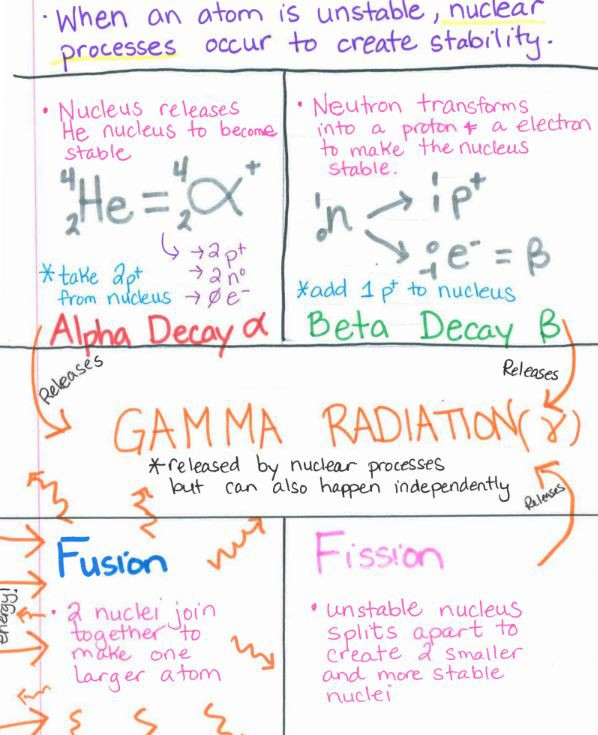 · When an atom is unstable, nuclear
processes occur to create stability.
• Nucleus releases
He nucleus to become
stable
⁴₂He = ⁴₂α⁺
→ 2p⁺
→ 2n⁰
→ ∅e⁻
*take 2p⁺
from nucleus
Alpha Decay α
• Neutron transforms
into a proton & a electron
to make the nucleus
stable.
¹₀n → ¹₁p⁺
⁰₋₁e⁻ = β
*add 1p⁺ to nucleus
Beta Decay β
Releases
Releases
GAMMA RADIATION(γ)
*released by nuclear processes
but can also happen independently
Releases
Fusion
• 2 nuclei join
together to
make one
larger atom
energy!
Fission
• unstable nucleus
splits apart to
create 2 smaller
and more stable
nuclei